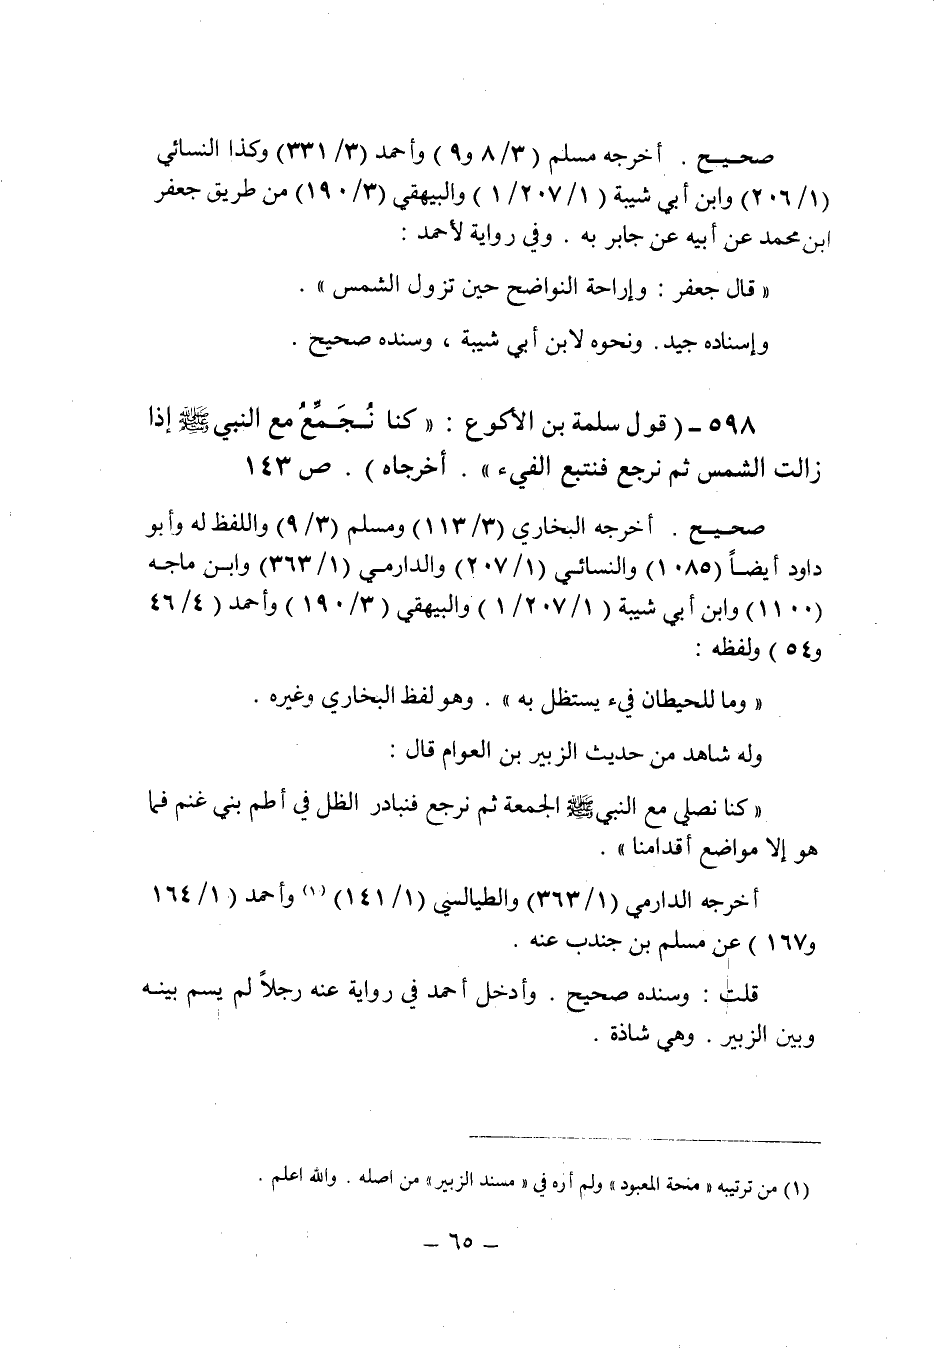 صحيح . أخرجه مسلم ( ٣/ ٨ و٩ ) وأحمد (٣/ ٣٣١) وكذا النسائي
(١/ ٢٠٦) وابن أبي شيبة ( ١/ ٢٠٧/ ١ ) والبيهقي (٣/ ١٩٠) من طريق جعفر
ابن محمد عن أبيه عن جابر به . وفي رواية لأحمد :
« قال جعفر : وإراحة النواضح حين تزول الشمس » .
وإسناده جيد . ونحوه لابن أبي شيبة ، وسنده صحيح .
٥٩٨ - ( قول سلمة بن الأكوع : « كنا نُجَمِّعُ مع النبي ﷺ إذا
زالت الشمس ثم نرجع فنتبع الفيء » . أخرجاه ) . ص ١٤٣
صحيح . أخرجه البخاري (٣/ ١١٣) ومسلم (٣/ ٩) واللفظ له وأبو
داود أيضاً (١٠٨٥) والنسائي (١/ ٢٠٧) والدارمي (١/ ٣٦٣) وابن ماجه
(١١٠٠) وابن أبي شيبة ( ١/ ٢٠٧/ ١ ) والبيهقي (٣/ ١٩٠ ) وأحمد ( ٤/ ٤٦
و٥٤ ) ولفظه :
« وما للحيطان فيء يستظل به » . وهو لفظ البخاري وغيره .
وله شاهد من حديث الزبير بن العوام قال :
« كنا نصلي مع النبي ﷺ الجمعة ثم نرجع فنبادر الظل في أطم بني غنم فما
هو إلا مواضع أقدامنا » .
أخرجه الدارمي (١/ ٣٦٣) والطيالسي (١/ ١٤١) (١) وأحمد ( ١/ ١٦٤
و١٦٧ ) عن مسلم بن جندب عنه .
قلت : وسنده صحيح . وأدخل أحمد في رواية عنه رجلاً لم يسم بينه
وبين الزبير . وهي شاذة .
(١) من ترتيبه « منحة المعبود » ولم أره في « مسند الزبير » من اصله . والله اعلم .
– ٦٥ –